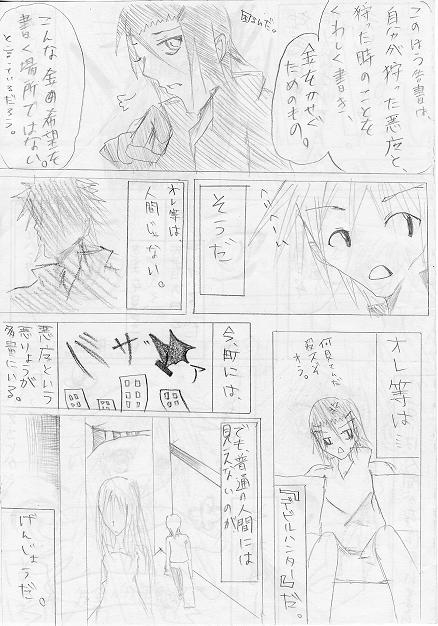 このほう告書は、
自分が狩った悪魔と、
狩った時のことを
くわしく書き、
金をかせぐ
ためのもの。
こんな金曲希望を
書く場所ではない。
と言っているだろう。
そうだ
オレ等は、
人間じゃない。
オレ等は…
何見てんだ
『デビルハンター』だ。
今、町には、
悪魔という
悪りょうが
多量にいる。
でも、普通の人間には
見えないのが
げんじょうだ。